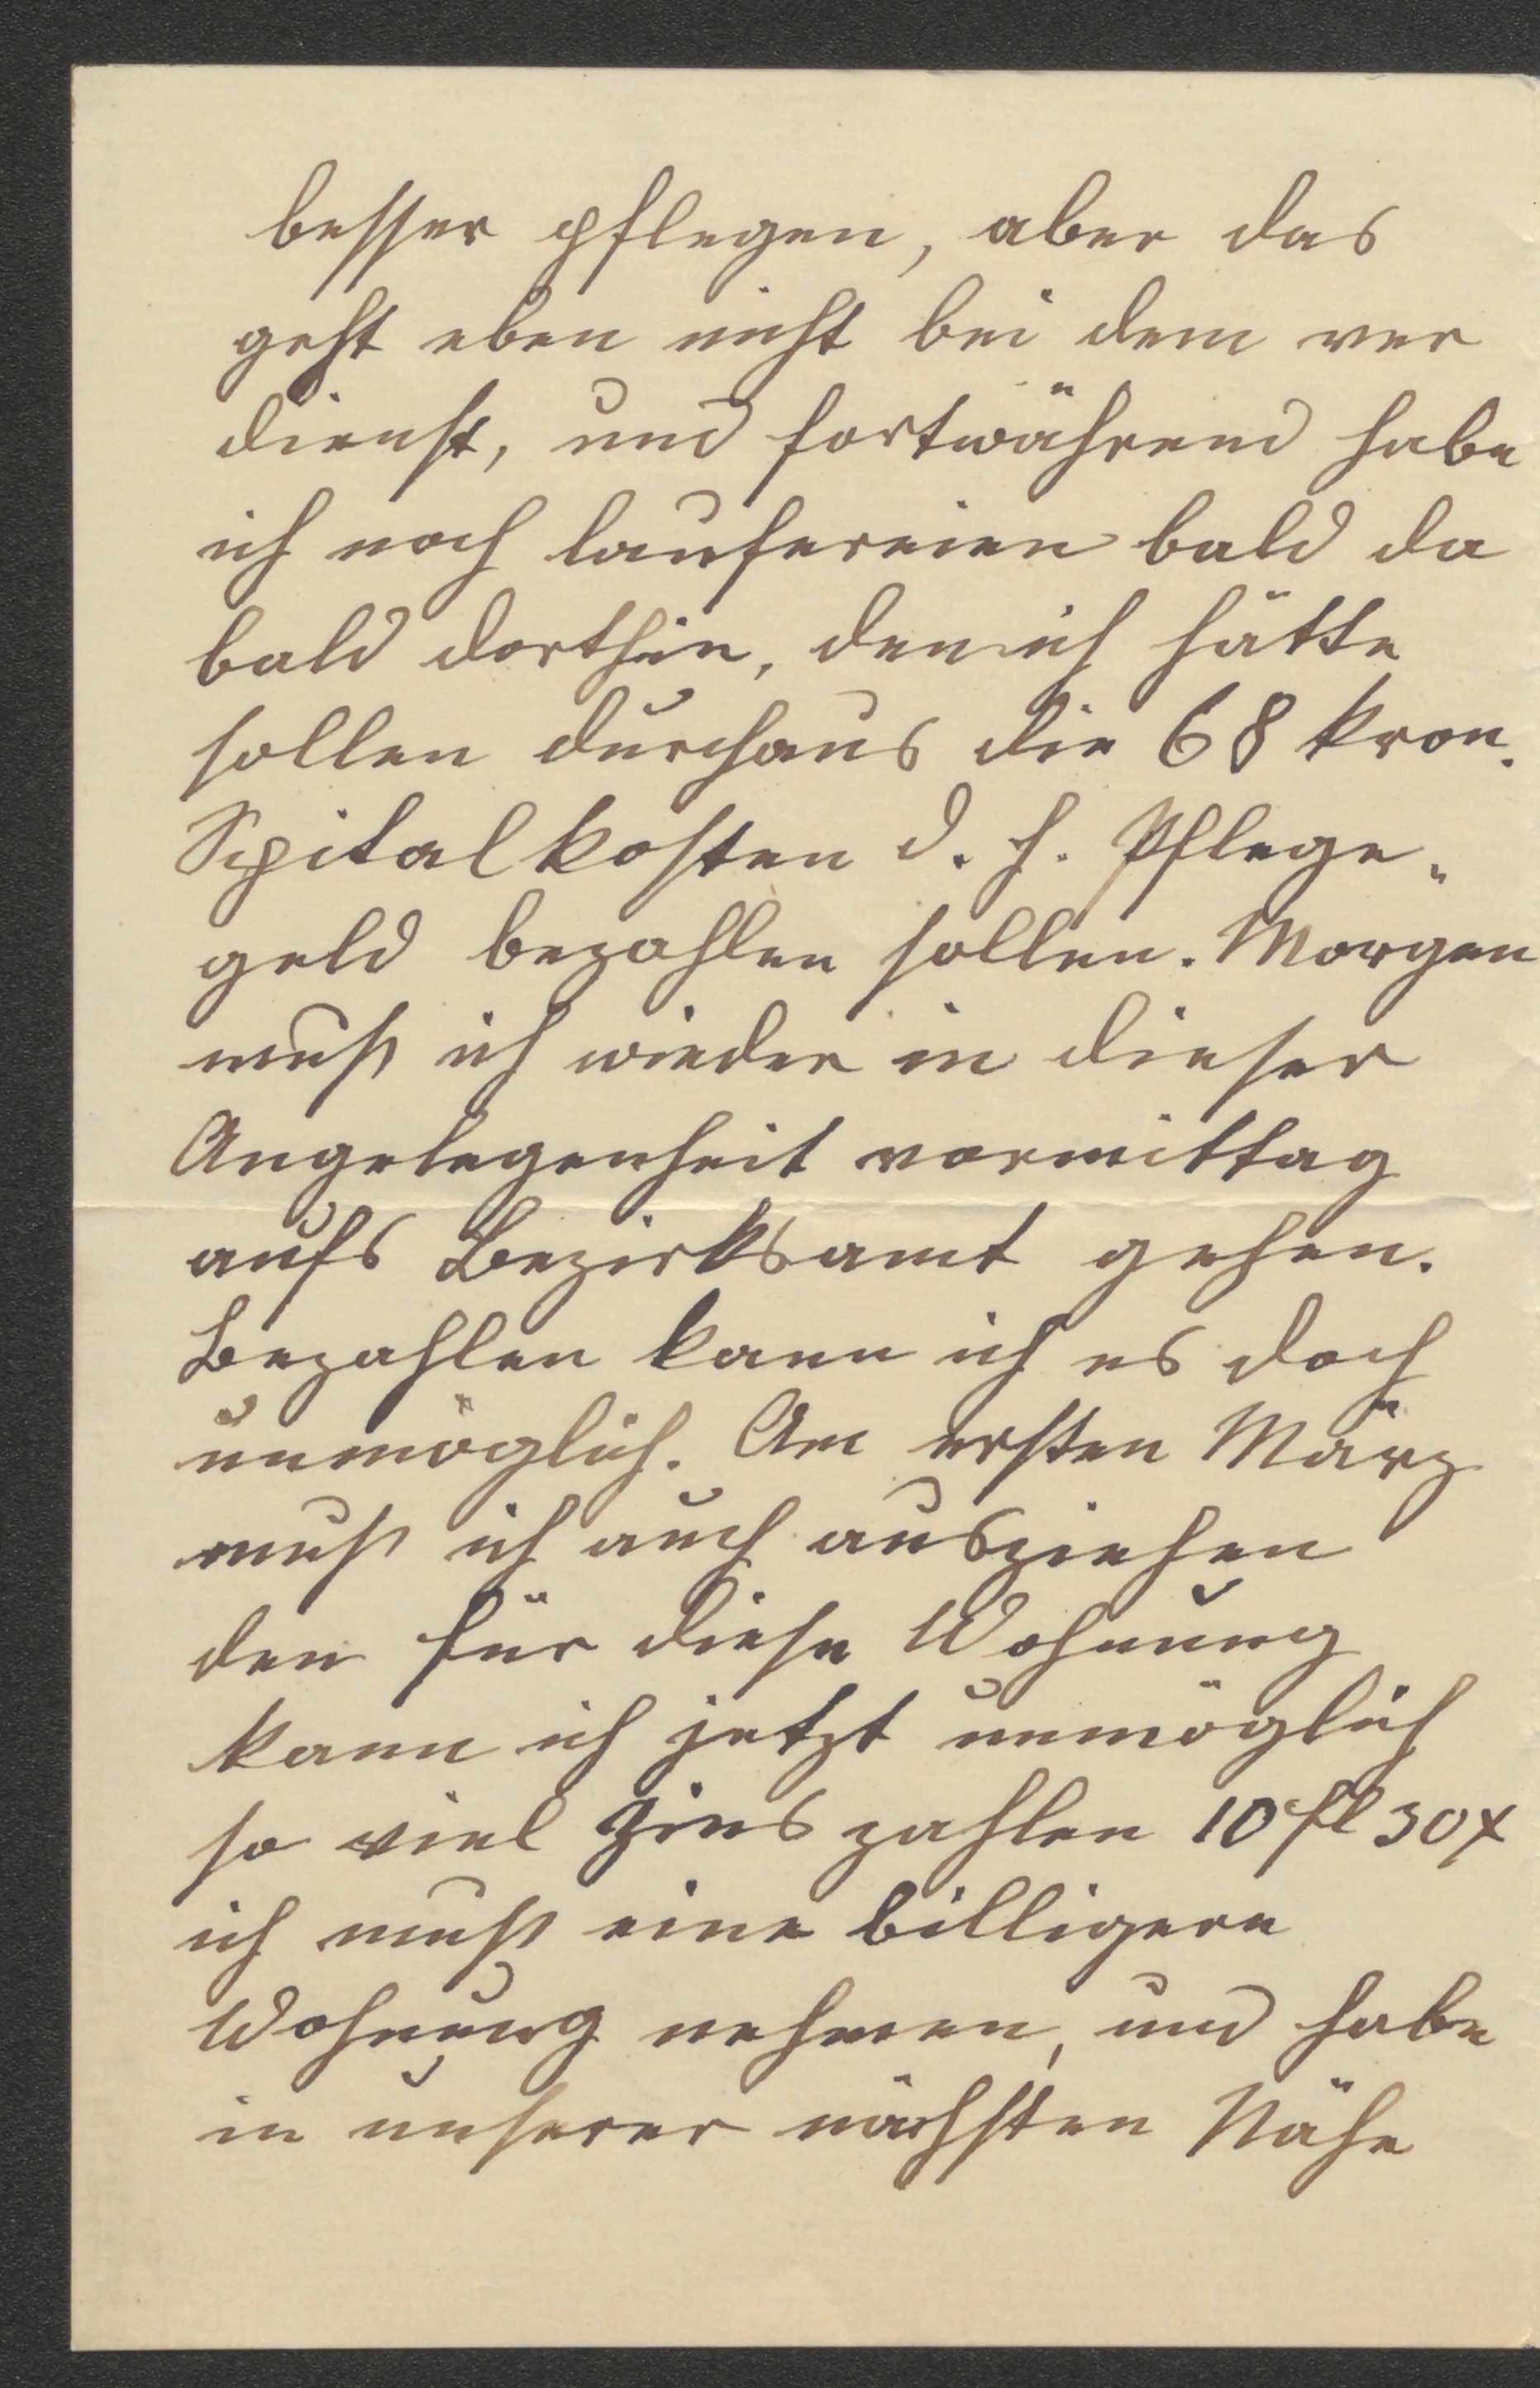 besser pflegen, aber das
geht eben nicht bei dem ver
dienst, und fortwährend habe
ich noch laufereien bald da
bald dorthin, den ich hätte
sollen durchaus die 68 kron.
Spitalkosten d. h. Pflege„
geld bezahlen sollen. Morgen
muß ich wieder in dieser
Angelegenheit vormittag
aufs Bezirksamt gehen.
Bezahlen kann ich es doch
unmöglich. Am ersten März
muß ich auch ausziehen
den für diese Wohnung
kann ich jetzt unmöglich
so viel Zins zahlen 10 fl 30 x
ich muß eine billigere
Wohnung nehmen, und habe
in unserer nächsten Nähe